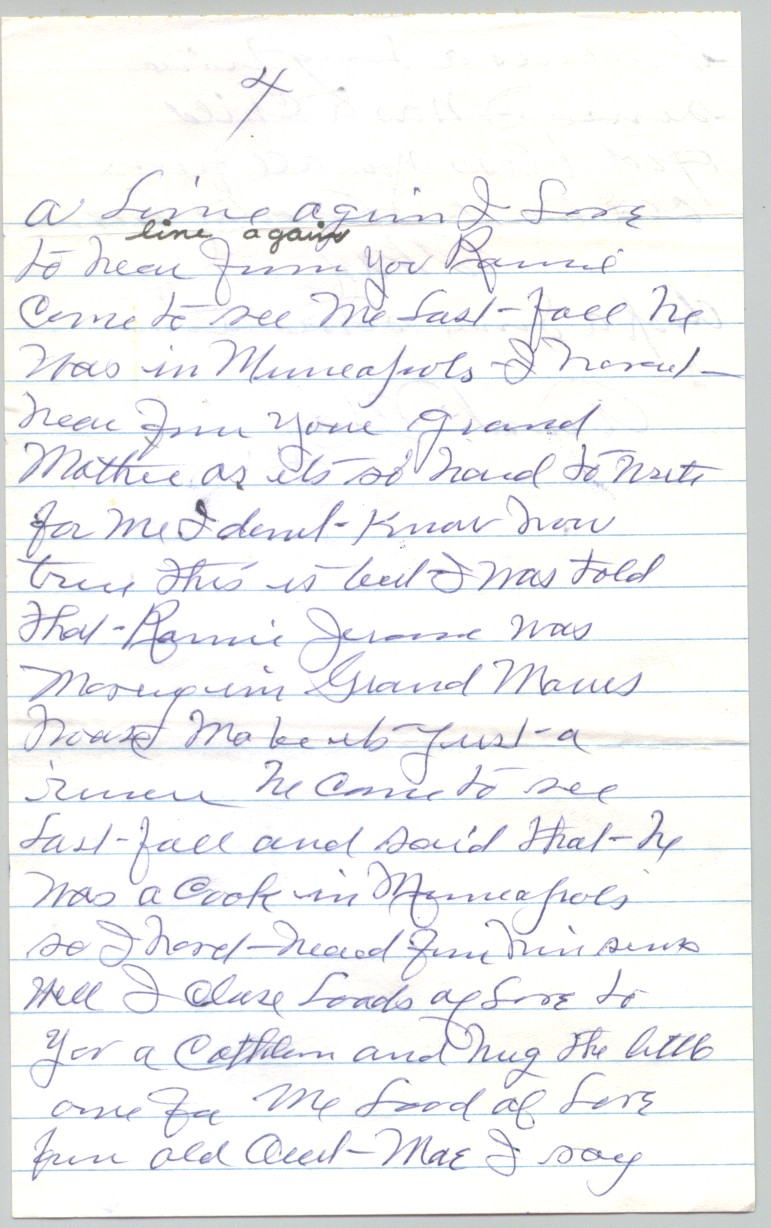 4
a Line again I Love
line again
to hear from you Ronnie
Come to see me Last fall he
was in Minneapolis I havent
hear from your Grand
Mother as its so hard to write
for me I dont Know how
true this is but I was told
that Ronnie Jerome was
moving in Grand Maws
house Mabe its just a
rumer he Come to see
Last fall and said that he
was a Cook in Minneapolis
so I havd heard from him sens
Well I Close Loads of Love to
You a and hug the little
one for me Lood of Love
from old Aunt Mae I say